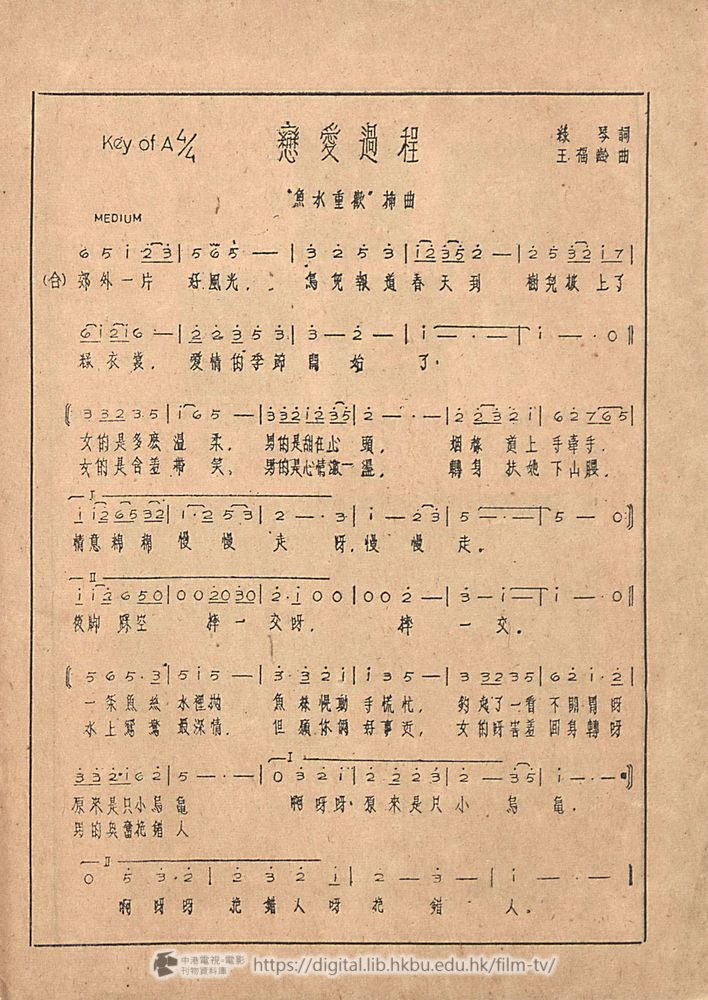 Key of A 4/4
戀愛過程
綠琴詞
王福齡曲
"魚水重歡"插曲
MEDIUM
6 5 i 2 3 | 5 6 5 — | 3 2 5 3 | i 2 3 5 2 — | 2 5 3 2 i 7 |
(合) 郊外一片 好風光, 鳥兒報道春天到 樹兒披上了
6 i 2 i 6 — | 2 2 3 5 3 | 3 — 2 — | i — — — | i — · 0 ‖
綠衣裳, 愛情的季節開始了·
3 3 2 3·5 | i 6 5 — | 3 3 2 i 2 3 5 | 2 — · · | 2 2 3 2 i | 6 2 7 6 5 |
女的是多麽溫柔, 男的是甜在心頭, 烟橡道上手牽手·
女的是含羞帶笑, 男的是心情滾一溫, 轉身扶她下山腰,
I
i i 2 6 5 3 2 | i · 2 5 3 | 2 — · 3 | i — 2 3 | 5 — · — | 5 — 0 :‖
情意棉棉慢慢走呀,慢慢走。
II
i i 2 6 5 0 | 0 0 2 0 3 0 | 2 · i 0 0 | 0 0 2 — | 3 — i — | i — · 0 ‖
後脚踩空 摔一交呀, 摔一交。
5 6 5 · 3 | 5 i 5 — | 3 · 3 2 i | i 3 5 — | 3 3 2 3 5 | 6 2 i · 2 |
一條魚絲水裡抛 魚絲慢動手慌忙, 釣起了一看不開胃呀
水上鴛鴦最深情, 但願你倆好事近, 女的呀害羞回身轉呀
I
3 3 2 · i 6 2 | 5 — · — | 0 3 2 i | 2 2 2 3 | 2 — 3 5 | i — · — :‖
原來是只小烏龜 啊呀呀·原來是只小烏龜·
男的興奮抱錯人
II
0 5 3 · 2 | 2 3 2 i | 2 — 3 — | i — — ‖
啊呀呀抱錯人呀抱錯人.
中港電視·電影
刊物資料庫
https://digital.lib.hkbu.edu.hk/film-tv/